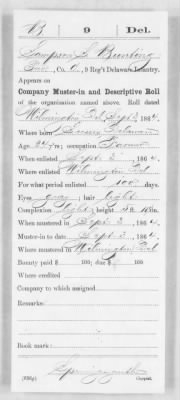 B 9 Del.
Sampson S. Bunting
Co. 9 Reg't Delaware Infantry.
Appears on
Company Muster-in and Descriptive Roll
of the organization named above. Roll dated
Wilmington Del Sept 3, 1864.
Where born Sussex Delaware
Age yrs; occupation Farmer
When enlisted Sept 2 1864
Where enlisted Wilmington Del
For what period enlisted 100 days
Eyes gray; hair light
Complexion light; height ft. in.
When mustered in Sept 3, 1864
Muster-in to date Sept 3, 1864
Where mustered in Wilmington Del
Bounty paid $ 100; due $ 100
Where credited
Company to which assigned
Remarks:
Book mark:
Copyist.